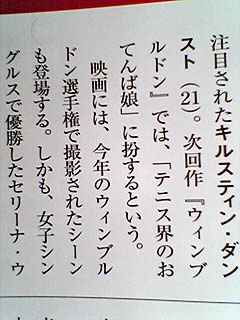 注目されたキルスティン・ダン
スト（21）。次回作『ウィンブ
ルドン』では、「テニス界のお
てんば娘」に扮するという。
映画には、今年のウィンブル
ドン選手権で撮影されたシーン
も登場する。しかも、女子シン
グルスで優勝したセリーナ・ウ